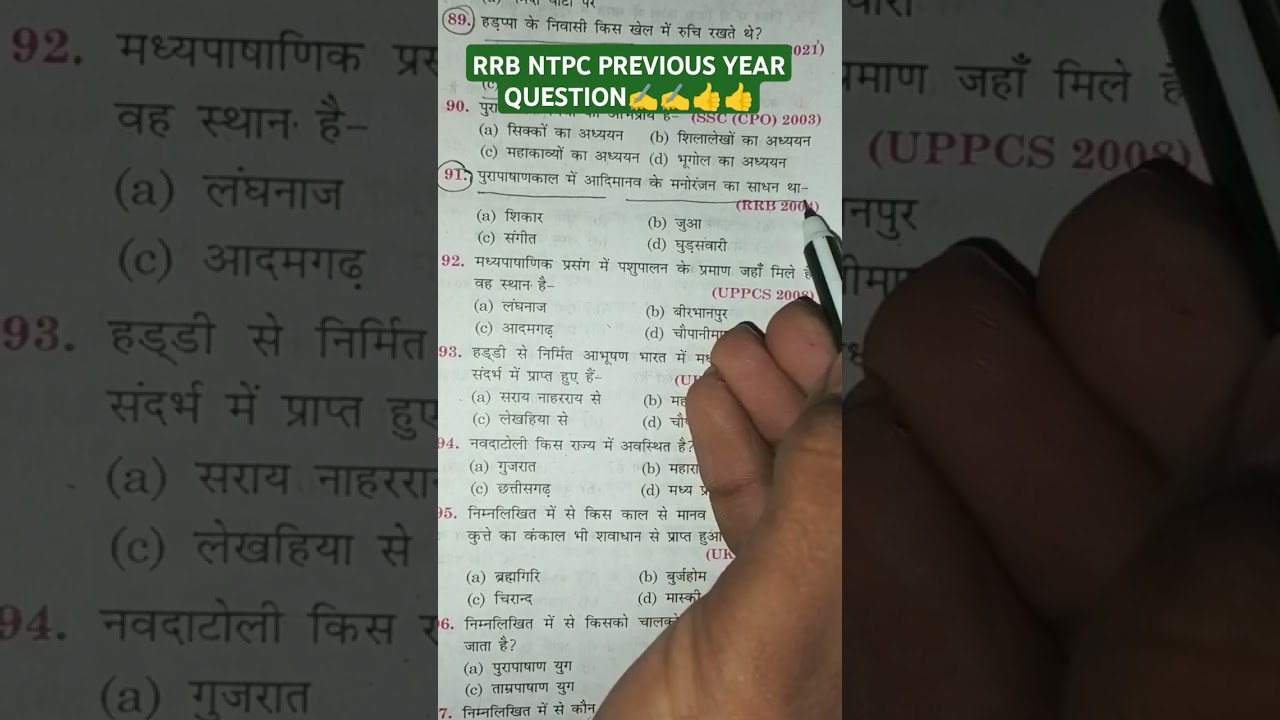 89. हड़प्पा के निवासी किस खेल में रुचि रखते थे?
2021)
RRB NTPC PREVIOUS YEAR
QUESTION✍️✍️👍👍
90.
(SSC (CPO) 2003)
(a) सिक्कों का अध्ययन (b) शिलालेखों का अध्ययन
(c) महाकाव्यों का अध्ययन (d) भूगोल का अध्ययन
91. पुरापाषाणकाल में आदिमानव के मनोरंजन का साधन था–
(RRB 2004)
(a) शिकार (b) जुआ
(c) संगीत (d) घुड़सवारी
92. मध्यपाषाणिक प्रसंग में पशुपालन के प्रमाण जहाँ मिले हैं
वह स्थान है–
(UPPCS 2008)
(a) लंघनाज (b) बीरभानपुर
(c) आदमगढ़ (d)
93. हड्डी से निर्मित आभूषण भारत में
संदर्भ में प्राप्त हुए हैं–
(a) सराय नाहरराय से (b)
(c) लेखहिया से (d)
94. नवदाटोली किस राज्य में अवस्थित है?
(a) गुजरात (b)
(c) छत्तीसगढ़ (d) मध्य
95. निम्नलिखित में से किस काल से मानव
कुत्ते का कंकाल भी शवाधान से प्राप्त
(a) ब्रह्मगिरि (b) बुर्जहोम
(c) चिरान्द (d) मास्की
96. निम्नलिखित में से किसको
जाता है?
(a) पुरापाषाण युग
(c) ताम्रपाषाण युग
97. निम्नलिखित में से कौन